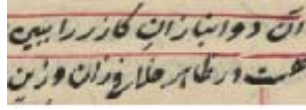 آن دو انبازان کازر را ببین
هست در ظاهر خلاف زان و زین